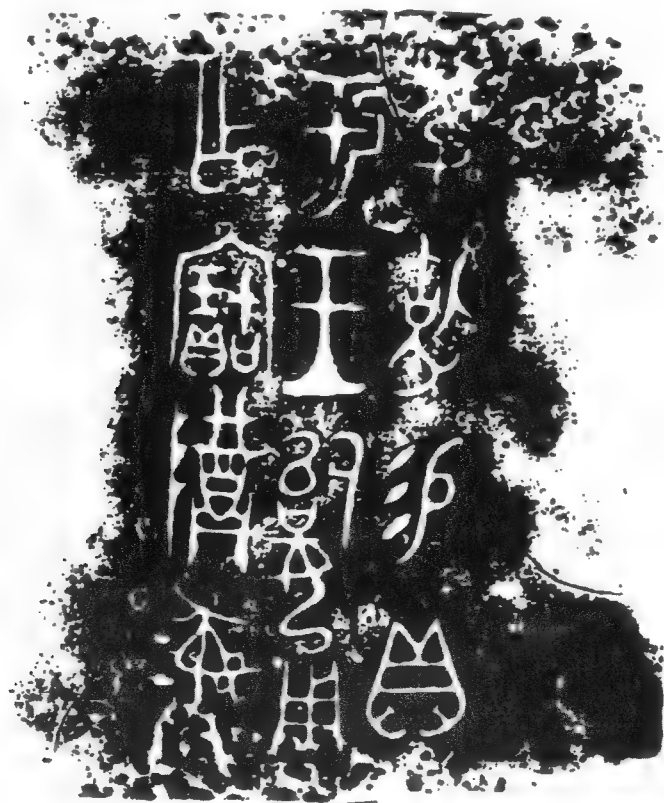 易貝
于王姒用
乍寶尊彝